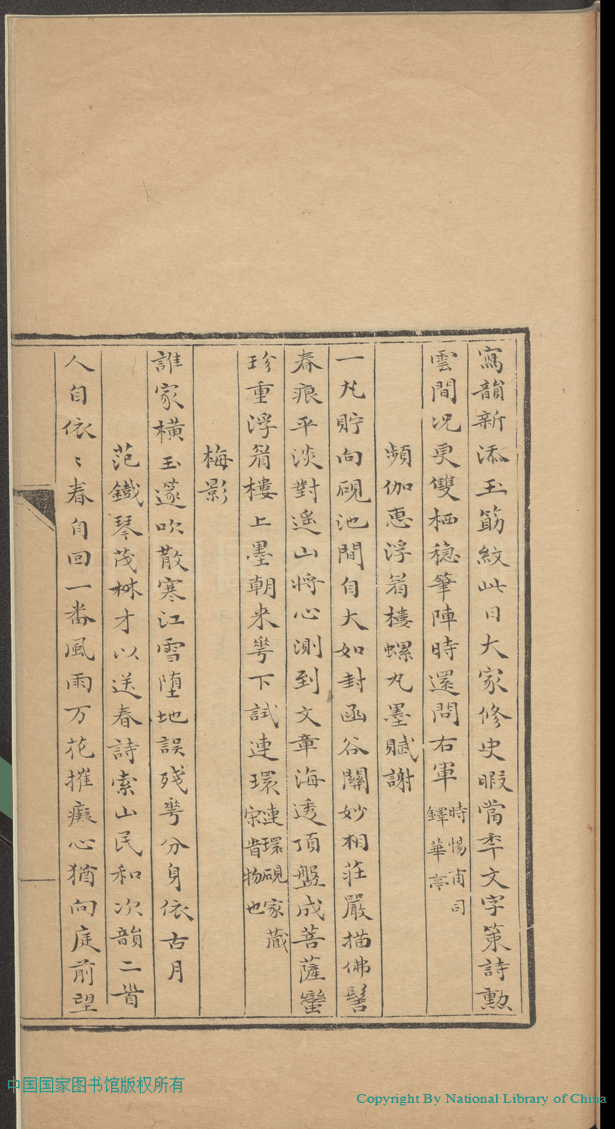 寫韻新添玉筯紋此日大家修史暇當秊文字策詩勳
雲間况更雙栖穩筆陣時還問右軍
時惕甫司
鐸華亭
頻伽惠浮眉樓螺丸墨賦謝
一丸貯向硯池間自大如封函谷關妙相莊嚴描佛髻
春痕平淡對遙山將心測到文章海透頂盤成菩薩蠻
珍重浮眉樓上墨朝来萼下試連環
連環硯家藏
物也
梅影
誰家橫玉篴吹散寒江雪墮地誤殘萼分身依古月
范鐵琴茂才以送春詩索山民和次韻二首
人自依〻春自回一番風雨万花摧癡心猶向庭前望
中国国家图书馆版权所有
Copyright By National Library of China